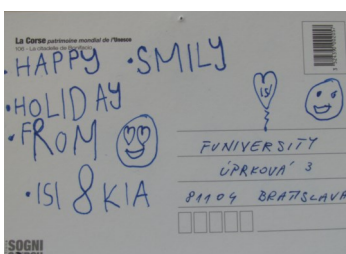 La Corse patrimoine mondial de l'Unesco
106 - La citadelle de Bonifacio
• HAPPY • SMILY
• HOLIDAY
• FROM
• ISI & KIA
ISI
FUNIVERSITY
ÚPRKOVÁ 3
81104 BRATISLAVA
SOGNI